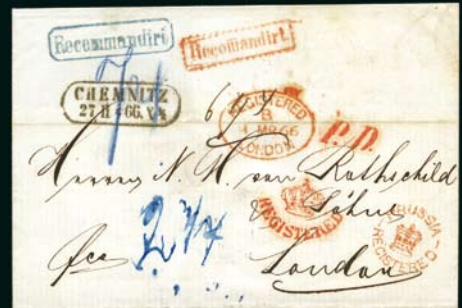 Recommandirt
Recomandirt
CHEMNITZ
27 II 66. V.½
REGISTERED
MR 66
LONDON
P.D.
Herren N. M. von Rothschild
& Söhne
REGISTERED
PRUSSIA
REGISTERED
fco
London